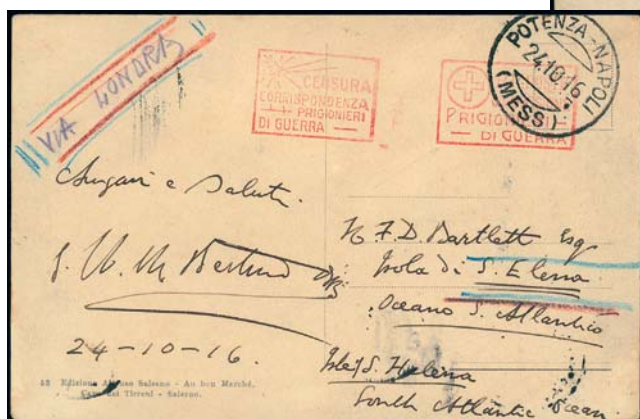 VIA LONDRA
CENSURA
CORRISPONDENZA
PRIGIONIERI
DI GUERRA
PRIGIONIERI
DI GUERRA
POTENZA-NAPOLI
24.10.16
(MESS.)
Auguri e Saluti.
24-10-16.
H. F. D. Bartlett Esq.
Isola di S. Elena
Oceano S. Atlantico
Isle of S. Helena
South Atlantic Ocean
43 Edizione Alfonso Salsano - Au bon Marché,
Cava dei Tirreni - Salerno.